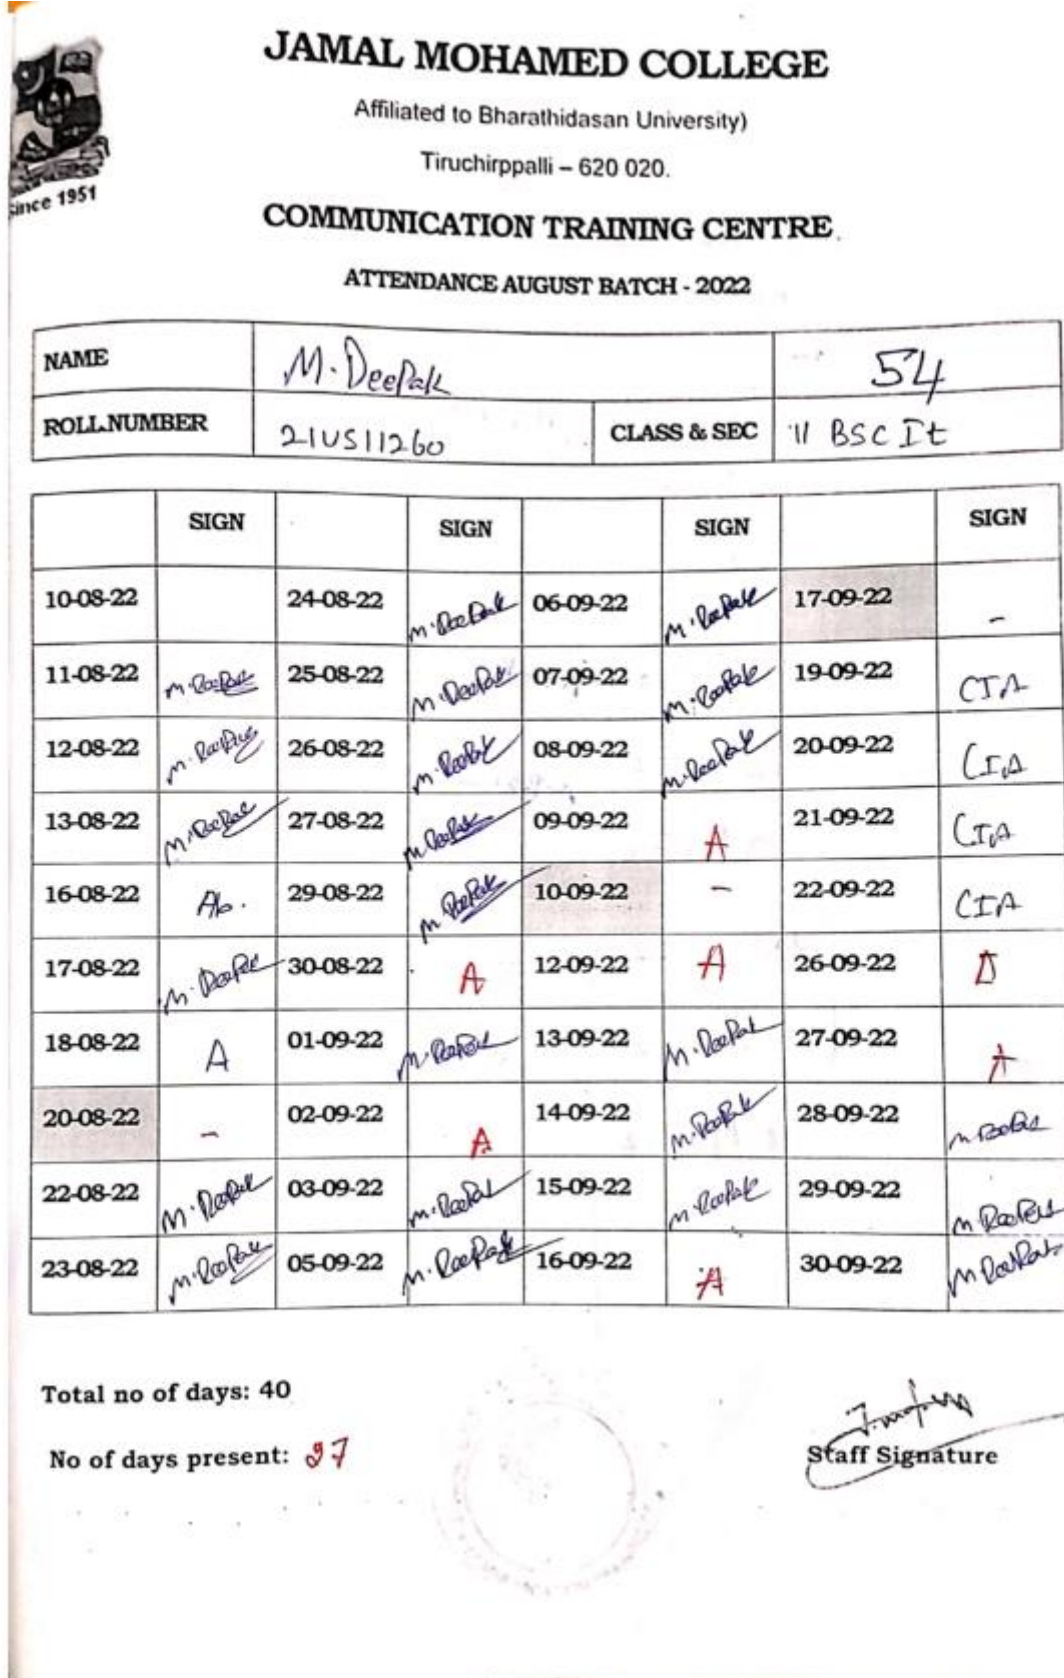 JAMAL MOHAMED COLLEGE
Affiliated to Bharathidasan University)
Tiruchirppalli – 620 020.
Since 1951
COMMUNICATION TRAINING CENTRE
ATTENDANCE AUGUST BATCH - 2022
NAME M. Deepak 54
ROLL.NUMBER 21US11260 CLASS & SEC II BSC It
SIGN SIGN SIGN SIGN
10-08-22 24-08-22 M. Deepak 06-09-22 M. Deepak 17-09-22 –
11-08-22 M. Deepak 25-08-22 M. Deepak 07-09-22 M. Deepak 19-09-22 CIA
12-08-22 M. Deepak 26-08-22 M. Deepak 08-09-22 M. Deepak 20-09-22 CIA
13-08-22 M. Deepak 27-08-22 M. Deepak 09-09-22 A 21-09-22 CIA
16-08-22 Ab. 29-08-22 M. Deepak 10-09-22 – 22-09-22 CIA
17-08-22 M. Deepak 30-08-22 A 12-09-22 A 26-09-22 A
18-08-22 A 01-09-22 M. Deepak 13-09-22 M. Deepak 27-09-22 A
20-08-22 – 02-09-22 A 14-09-22 M. Deepak 28-09-22 M. Deepak
22-08-22 M. Deepak 03-09-22 M. Deepak 15-09-22 M. Deepak 29-09-22 M. Deepak
23-08-22 M. Deepak 05-09-22 M. Deepak 16-09-22 A 30-09-22 M. Deepak
Total no of days: 40
No of days present: 27
Staff Signature